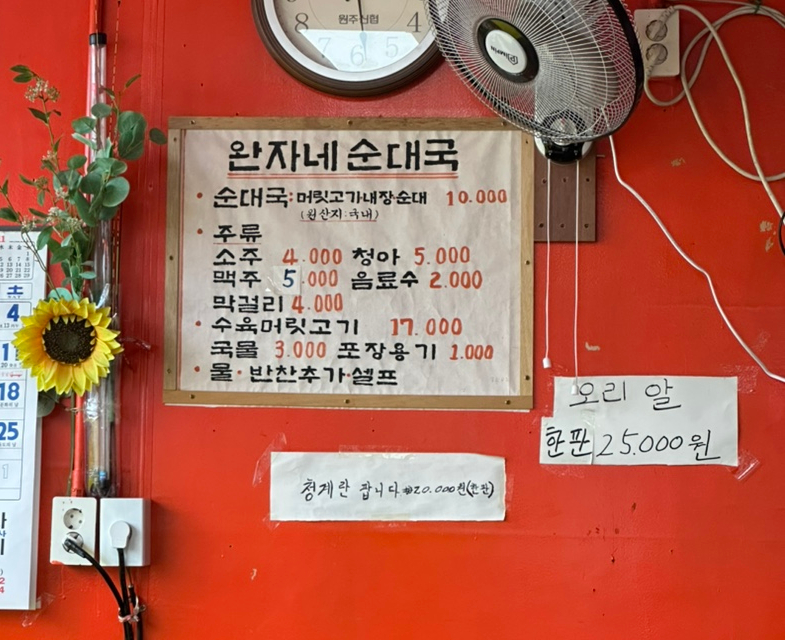 원주신협
8 7 6 5 4
완자네 순대국
• 순대국: 머릿고기내장순대 10.000
(원산지:국내)
• 주류
소주 4.000 청아 5.000
맥주 5.000 음료수 2.000
막걸리 4.000
• 수육머릿고기 17.000
국물 3.000 포장용기 1.000
• 물·반찬추가·셀프
오리 알
한판 25.000원
청계란 팝니다 ₩20.000원(한판)
土
4
18
25